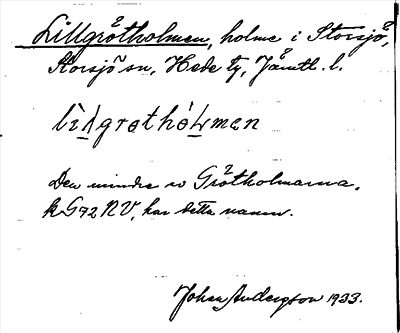 Lillgråtholmen, holme i Storsjö å,
Storsjö sn, Hede tg, Jämtl. l.
lìlgrothò̱ḻmen
Den mindre av Gråtholmarna,
k G72 NV, har detta namn.
Johan Anderzson 1933.